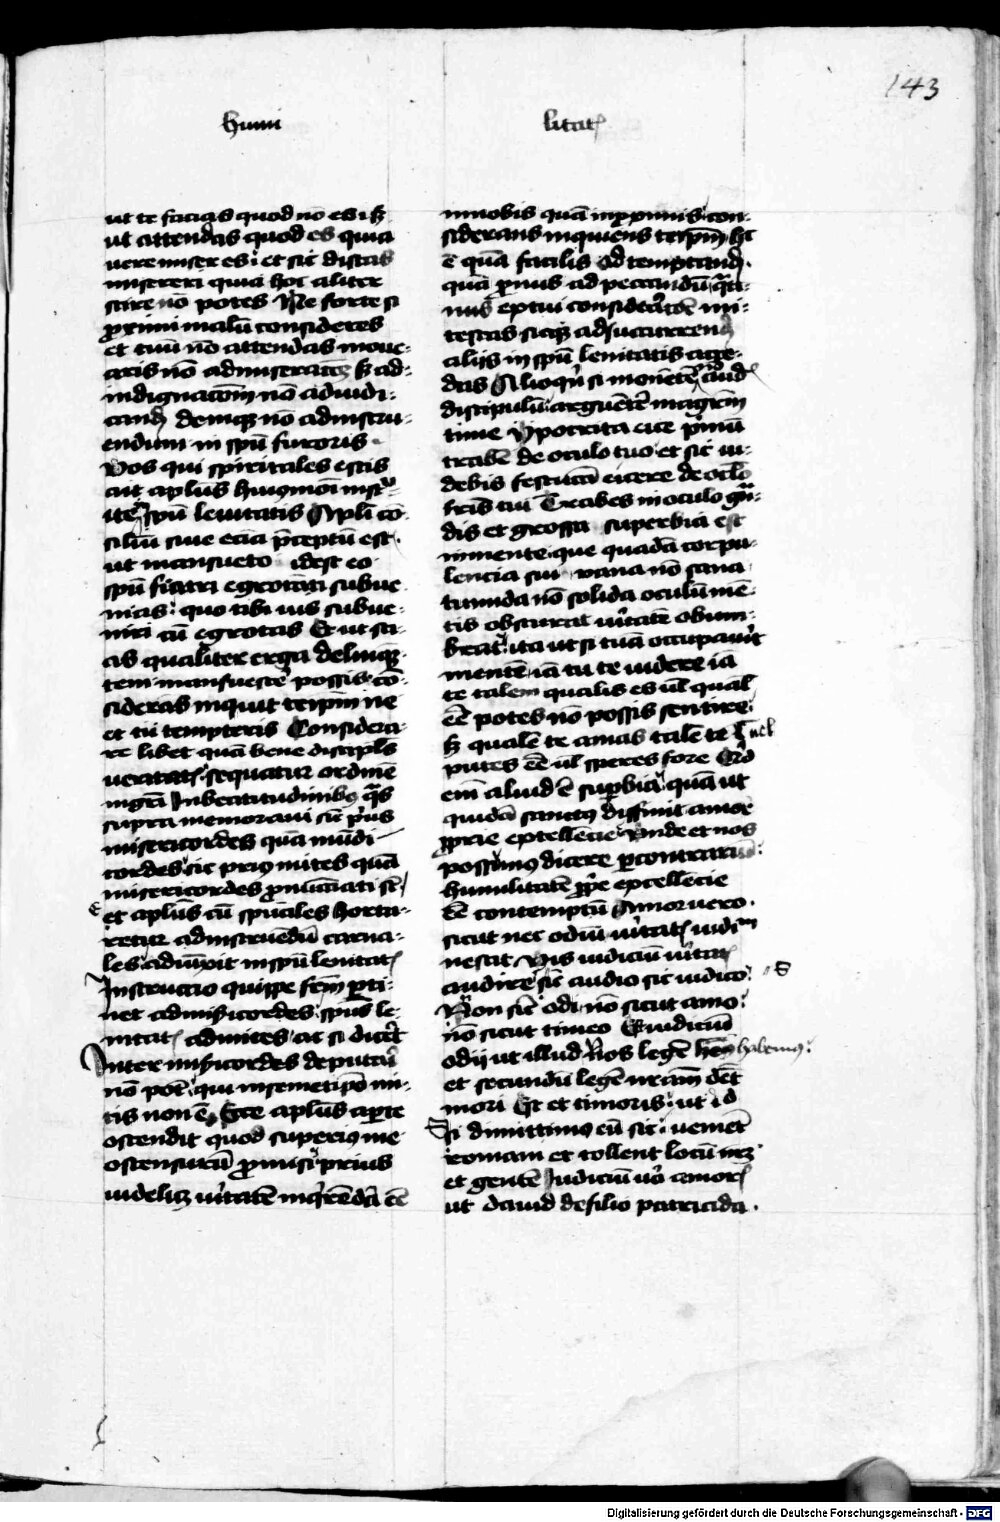 143
humi litat̄
ut te facias quod nō es ł sꝫ
ut attendas quod es quia
uere miser es: et sic discas
misereri quia hoc aliter
scire nō potes Ne forte si
ꝓximi malū consideres
et tuū nō attendas moue-
aris nō ad miseratōeꝫ sꝫ ad
indignacōm nō ad iudi-
cand̄ deniqꝫ nō ad instru-
endum in spū furoris.
Vos qui spiritales estis
ait apl̄us huiꝰmōi instr-
ite in spū lenitatis Apl̄i cō-
siliū siue ecia p̄ceptū est.
ut mansueto idest eo
spū fratri egrotāti subue
nias: quo tibi uis subue-
niri cū egrotas Et ut sci-
as qualiter erga delinqꝫ-
tem mansuesce͛ possis: cō-
siderās inquit teip̄m ne
et tu tempteris Considera-
re libet quā bene discipl̄s
ueritat̄ sequatur ordinē
mgr̄i In beatitudinibꝰ q̄s
supra memoraui sic p̄us
misericordes quā mūdi
cordes sic priꝰ mites quā
misericordes ꝓnūcciati st̄
et apl̄us cū spūales horta-
retur ad instruēdū carna-
les adiūxit in spū lenitat̄
Instruccio quippe fr̄m ꝑti-
net ad mīs̄icordes spūs le-
nitat̄ ad mites ac si dicēt
Inter mīs̄icordes deputari
nō pot̄ qui in semetip̄o mi-
tis non ē. Ecce apl̄us aꝑte
ostendit quod superiꝰ me
ostensurū ꝓmisi prius
uidelicꝫ u͛itatē inq͛rēdā ēē
in nobis quā in ꝓximis: con-
siderans inquiens teip̄m hͦ
ē quā facilis ad temptand̄.
quā ꝓnus ad peccandū q̄ti-
nus ex tui consideratōe mi-
tescas sicqꝫ ad succurrend̄
aliis in spū lenitatis acce-
das Alioqͥn si monētē audꝭ
discipulū arguētē mag͛m
time Ypocrita eice p͛mū
trabē de oculo tuo et sic ui-
debis festucā eicere de oclō
fr̄is tui Trabes in oculo grā-
dis et grossa superbia est
in mente que quadā corpu-
lencia sui uana nō sana
tumida nō solida oculū mē-
tis obscurat u͛itatē obum-
brat: ita ut si tuā occupau͛it
mentē iā tu te uidere iā
te talem qualis es ul̄ qual̄
ēē potes nō possis sentire:
sꝫ qualē te amas talē te uel
putes ēē ul̄ speres fore Qͥd
em̄ aliud ē suꝑbia quā ut
quidā sanctꝰ diffinit amor
ꝓprie excellēcie Vnde et nos
possumꝰ dicere ꝑ contrariū:
humilitatē ꝓp͛e excellēcie
ēē contemptū Amor uero.
sicut nec odiū u͛itat̄ iudiᵐ
nescit Vis iudiciū u͛itat̄
audire sic̄ audio sic iudico:
Non sic̄ odi nō sicut amo:
nō sicut timeo Est iudiciū
odij ut illud Nos legē habemꝰ:
et secundū legē nr̄am debt̄
mori Est et timoris: ut id
Si dimittimꝰ eū sic: uenient
romani et tollent locū nr̄ꝫ
et gentē Iudiciū u͛o amoris
ut dauid de filio patricida.
Digitalisierung gefördert durch die Deutsche Forschungsgemeinschaft - DFG